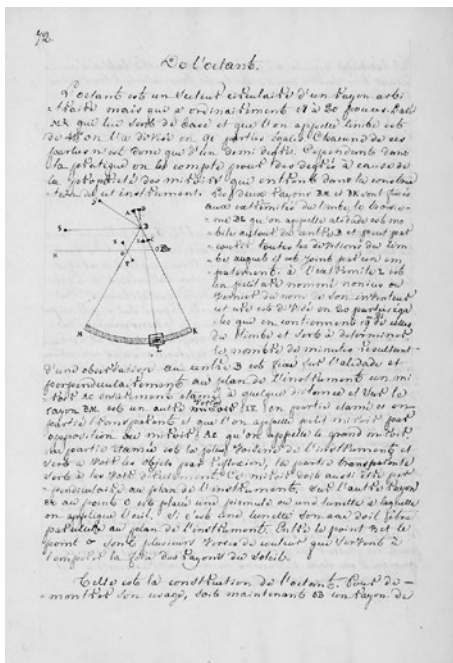 72.
De l'octant.
L'octant est un secteur circulaire d'un rayon arbi
traire mais qui a ordinairement 18 à 20 pouces. L'arc
MK qui lui sert de base et que l'on appelle limbe est
de 45° on l'a divisé en 90 parties égales Chacune de ces
parties n'est donc que d'un demi degré. Cependant dans
la pratique on les compte pour des degrés à cause de
la propriété des miroirs qui entrent dans la construc
tion de cet instrument. Les deux rayons BM et BK sont fixés
aux extrémités du limbe, le troisiè
me BL qu'on appelle alidade est mo
bile autour du centre B et peut par
courir toutes les divisions du lim
be auquel il est joint par un em
patement. à l'extrémité L est
un petit arc nommé nonius ou
vernier du nom de son inventeur
cet arc est divisé en 20 parties éga
les qui en contiennent 19 de celles
du limbe et sert à déterminer
le nombre de minutes résultant
d'une observation au centre B est fixé sur l'alidade et
perpendiculairement au plan de l'instrument un mi
roir AC entièrement étamé à quelque distance et sur le
rayon BM est un autre miroir en partie étamé et en
partie transparent et que l'on appelle petit miroir par
opposition au miroir AC qu'on appelle le grand miroir.
La partie étamée est la plus voisine de l'instrument et
sert à voir les objets par réflexion, la partie transparente
sert à les voir directement. Ce miroir doit aussi être per
pendiculaire au plan de l'instrument. Sur l'autre rayon
BK au point O est placé une pinnule ou une lunette à laquelle
on applique l'œil. Si c'est une lunette son axe doit être
parallèle au plan de l'instrument. Entre le point et le
point sont plusieurs verres de couleur qui servent à
tempérer la force des rayons du soleil.
Telle est la construction de l'octant. Pour dé-
montrer son usage, soit maintenant SB un rayon de
S
S
B
O
M
K
L